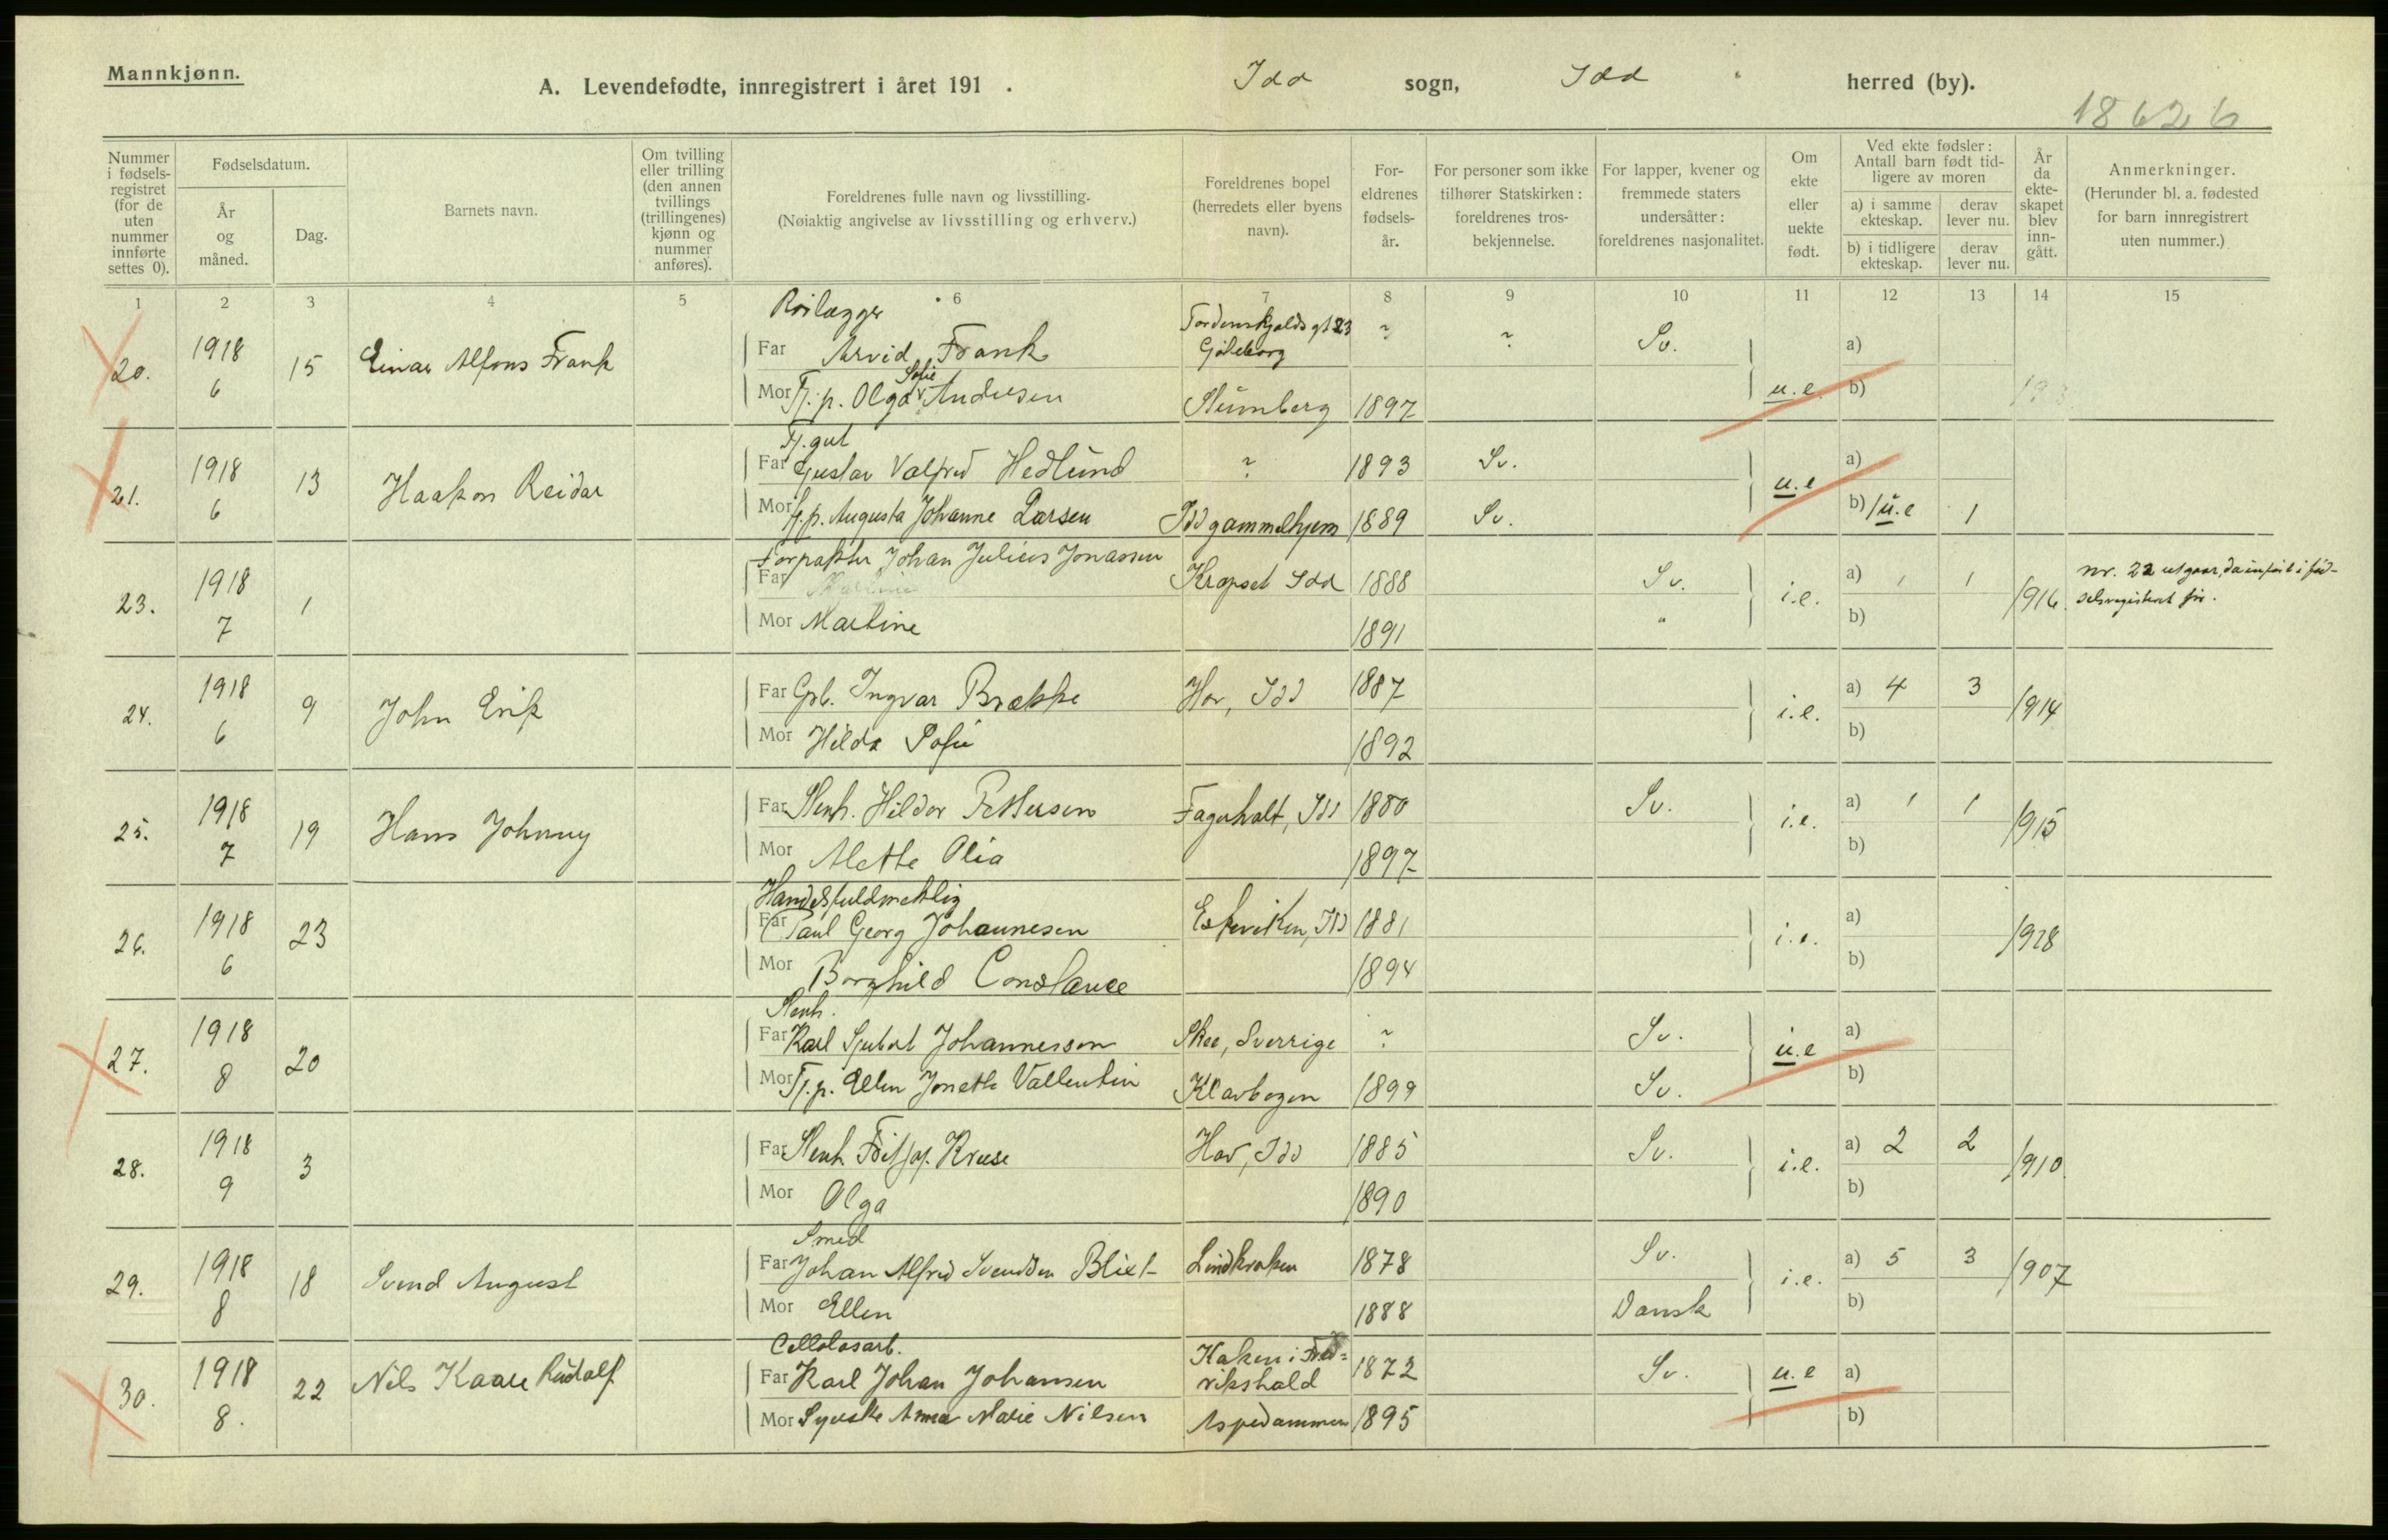 Mannkjønn.
A. Levendefødte, innregistrert i året 191 . Idd sogn, Idd herred (by).
18626
Nummer i fødsels-registret (for de uten nummer innførte settes 0).
Fødselsdatum.
År og måned.
Dag.
Barnets navn.
Om tvilling eller trilling (den annen tvillings (trillingenes) kjønn og nummer anføres).
Foreldrenes fulle navn og livsstilling.
(Nøiaktig angivelse av livsstilling og erhverv.)
Foreldrenes bopel (herredets eller byens navn).
For-eldrenes fødsels-år.
For personer som ikke tilhører Statskirken: foreldrenes tros-bekjennelse.
For lapper, kvener og fremmede staters undersåtter: foreldrenes nasjonalitet.
Om ekte eller uekte født.
Ved ekte fødsler: Antall barn født tid-ligere av moren
a) i samme ekteskap. derav lever nu.
b) i tidligere ekteskap. derav lever nu.
År da ekte-skapet blev inn-gått.
Anmerkninger.
(Herunder bl. a. fødested for barn innregistrert uten nummer.)
1 2 3 4 5 6 7 8 9 10 11 12 13 14 15
20. 1918 6 15 Einar Alfons Frank
Far Arvid Frank Tordenskjolds gt 23 Gøteborg ? ? Sv. a)
Mor Tj.p. Olga Sofie Andersen 1897 u.e. b)
21. 1918 6 13 Haakon Reidar
Tj.gut
Far Gustav Valfred Hedlund ? 1893 Sv. a)
Mor Tj.p. Augusta Johanne Larsen Idd gammelhjem 1889 Sv. u.e b) 1 u.e 1
23. 1918 7 1
Forpakter Johan Julius Jonassen
Far Idd 1888 Sv. i.e. a) 1 1 1916.
Mor Martine 1891 " b)
nr. 22 utgaar, da
24. 1918 6 9 John Erik
Far Ingvar Brække Hov, Idd 1887 i.e. a) 4 3 1914
Mor Hilda Sofie 1892 b)
25. 1918 7 19 Hans Johnny
Far Stenh. Hildor Pettersen Fagerholt, Idd 1880 Sv. i.e. a) 1 1 1915
Mor Alette Olia 1897 b)
26. 1918 6 23
Handelsfuldmektig
Far Paul Georg Johannesen Eskeviken, Idd 1881 i.e. a) 1918
Mor Borghild Constance 1894 b)
27. 1918 8 20
Stenh.
Far Karl Johannesson Skee, Sverrige ? Sv. u.e a)
Mor Tj.p. Ellen Jonette Vallentin 1899 Sv. b)
28. 1918 9 3
Far Stenh. Fritjof Kruse Hov, Idd 1885 Sv. i.e. a) 2 2 1910.
Mor Olga 1890 b)
29. 1918 8 18 Svend August
Smed
Far Johan Alfred Svendsen Blixt 1878 Sv. i.e. a) 5 3 1907
Mor Ellen 1888 Dansk b)
30. 1918 8. 22 Nils Kaare Rudolf
Cellolosarb.
Far Karl Johan Johansen i Fred=rikshald 1872 Sv. u.e a)
Mor Syerske Anna Marie Nilsen Aspedammen 1895 b)